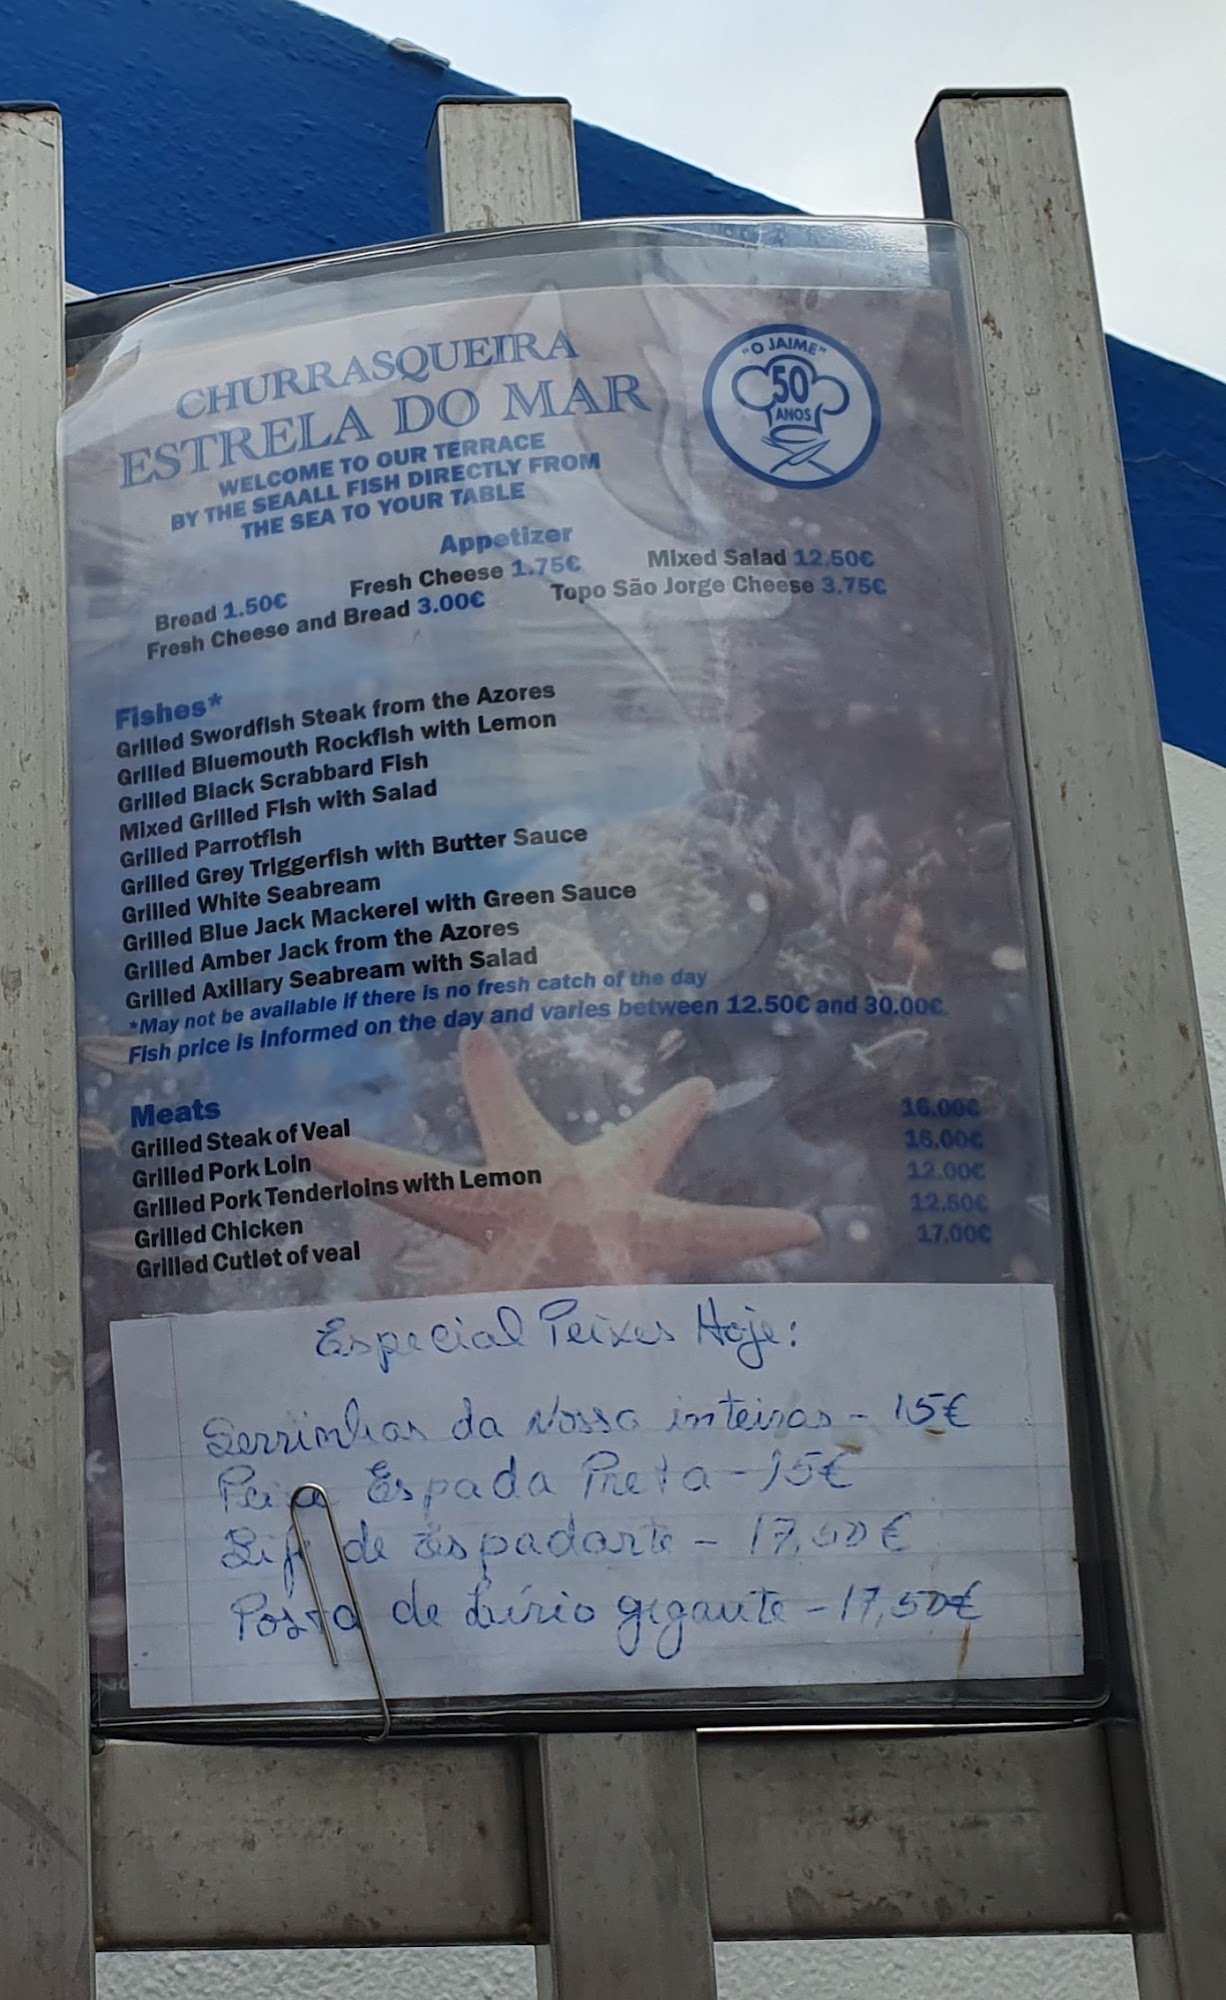 CHURRASQUEIRA
ESTRELA DO MAR
WELCOME TO OUR TERRACE
BY THE SEAALL FISH DIRECTLY FROM
THE SEA TO YOUR TABLE
"O JAIME"
50
ANOS
Appetizer
Bread 1.50€ Fresh Cheese 1.75€ Mixed Salad 12.50€
Fresh Cheese and Bread 3.00€ Topo São Jorge Cheese 3.75€
Fishes*
Grilled Swordfish Steak from the Azores
Grilled Bluemouth Rockfish with Lemon
Grilled Black Scrabbard Fish
Mixed Grilled Fish with Salad
Grilled Parrotfish
Grilled Grey Triggerfish with Butter Sauce
Grilled White Seabream
Grilled Blue Jack Mackerel with Green Sauce
Grilled Amber Jack from the Azores
Grilled Axillary Seabream with Salad
*May not be available if there is no fresh catch of the day
Fish price is informed on the day and varies between 12.50€ and 30.00€.
Meats
Grilled Steak of Veal 16.00€
Grilled Pork Loin 16.00€
Grilled Pork Tenderloins with Lemon 12.00€
Grilled Chicken 12.50€
Grilled Cutlet of veal 17.00€
Especial Peixes Hoje:
Serrinhas da Nossa inteiras - 15€
Peixe Espada Preta - 15€
Bife de Espadarte - 17,50€
Posta de Lírio gigante - 17,50€